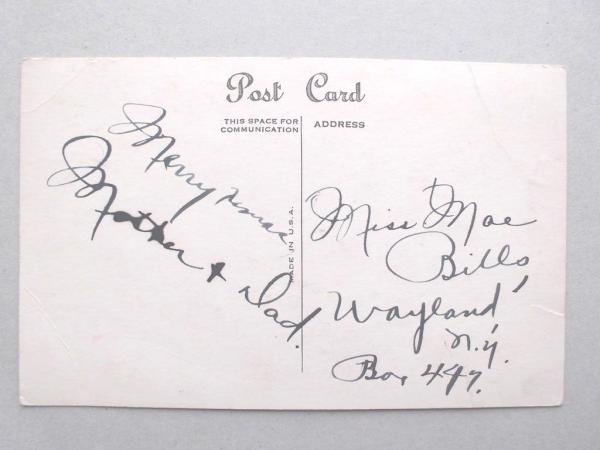 Post Card
THIS SPACE FOR
COMMUNICATION
ADDRESS
Merry Xmas
Mother + Dad.
MADE IN U.S.A.
Miss Mae
Bills
Wayland
N.Y.
Box 447.